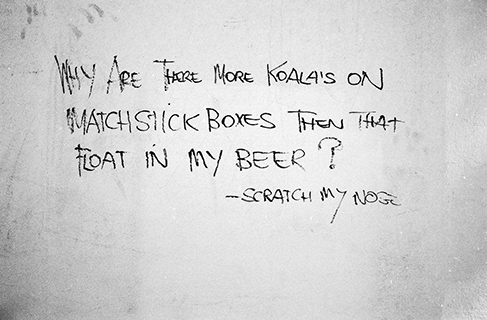 WHY ARE THERE MORE KOALA'S ON
MATCHSTICK BOXES THEN THAT
FLOAT IN MY BEER?
-SCRATCH MY NOSE